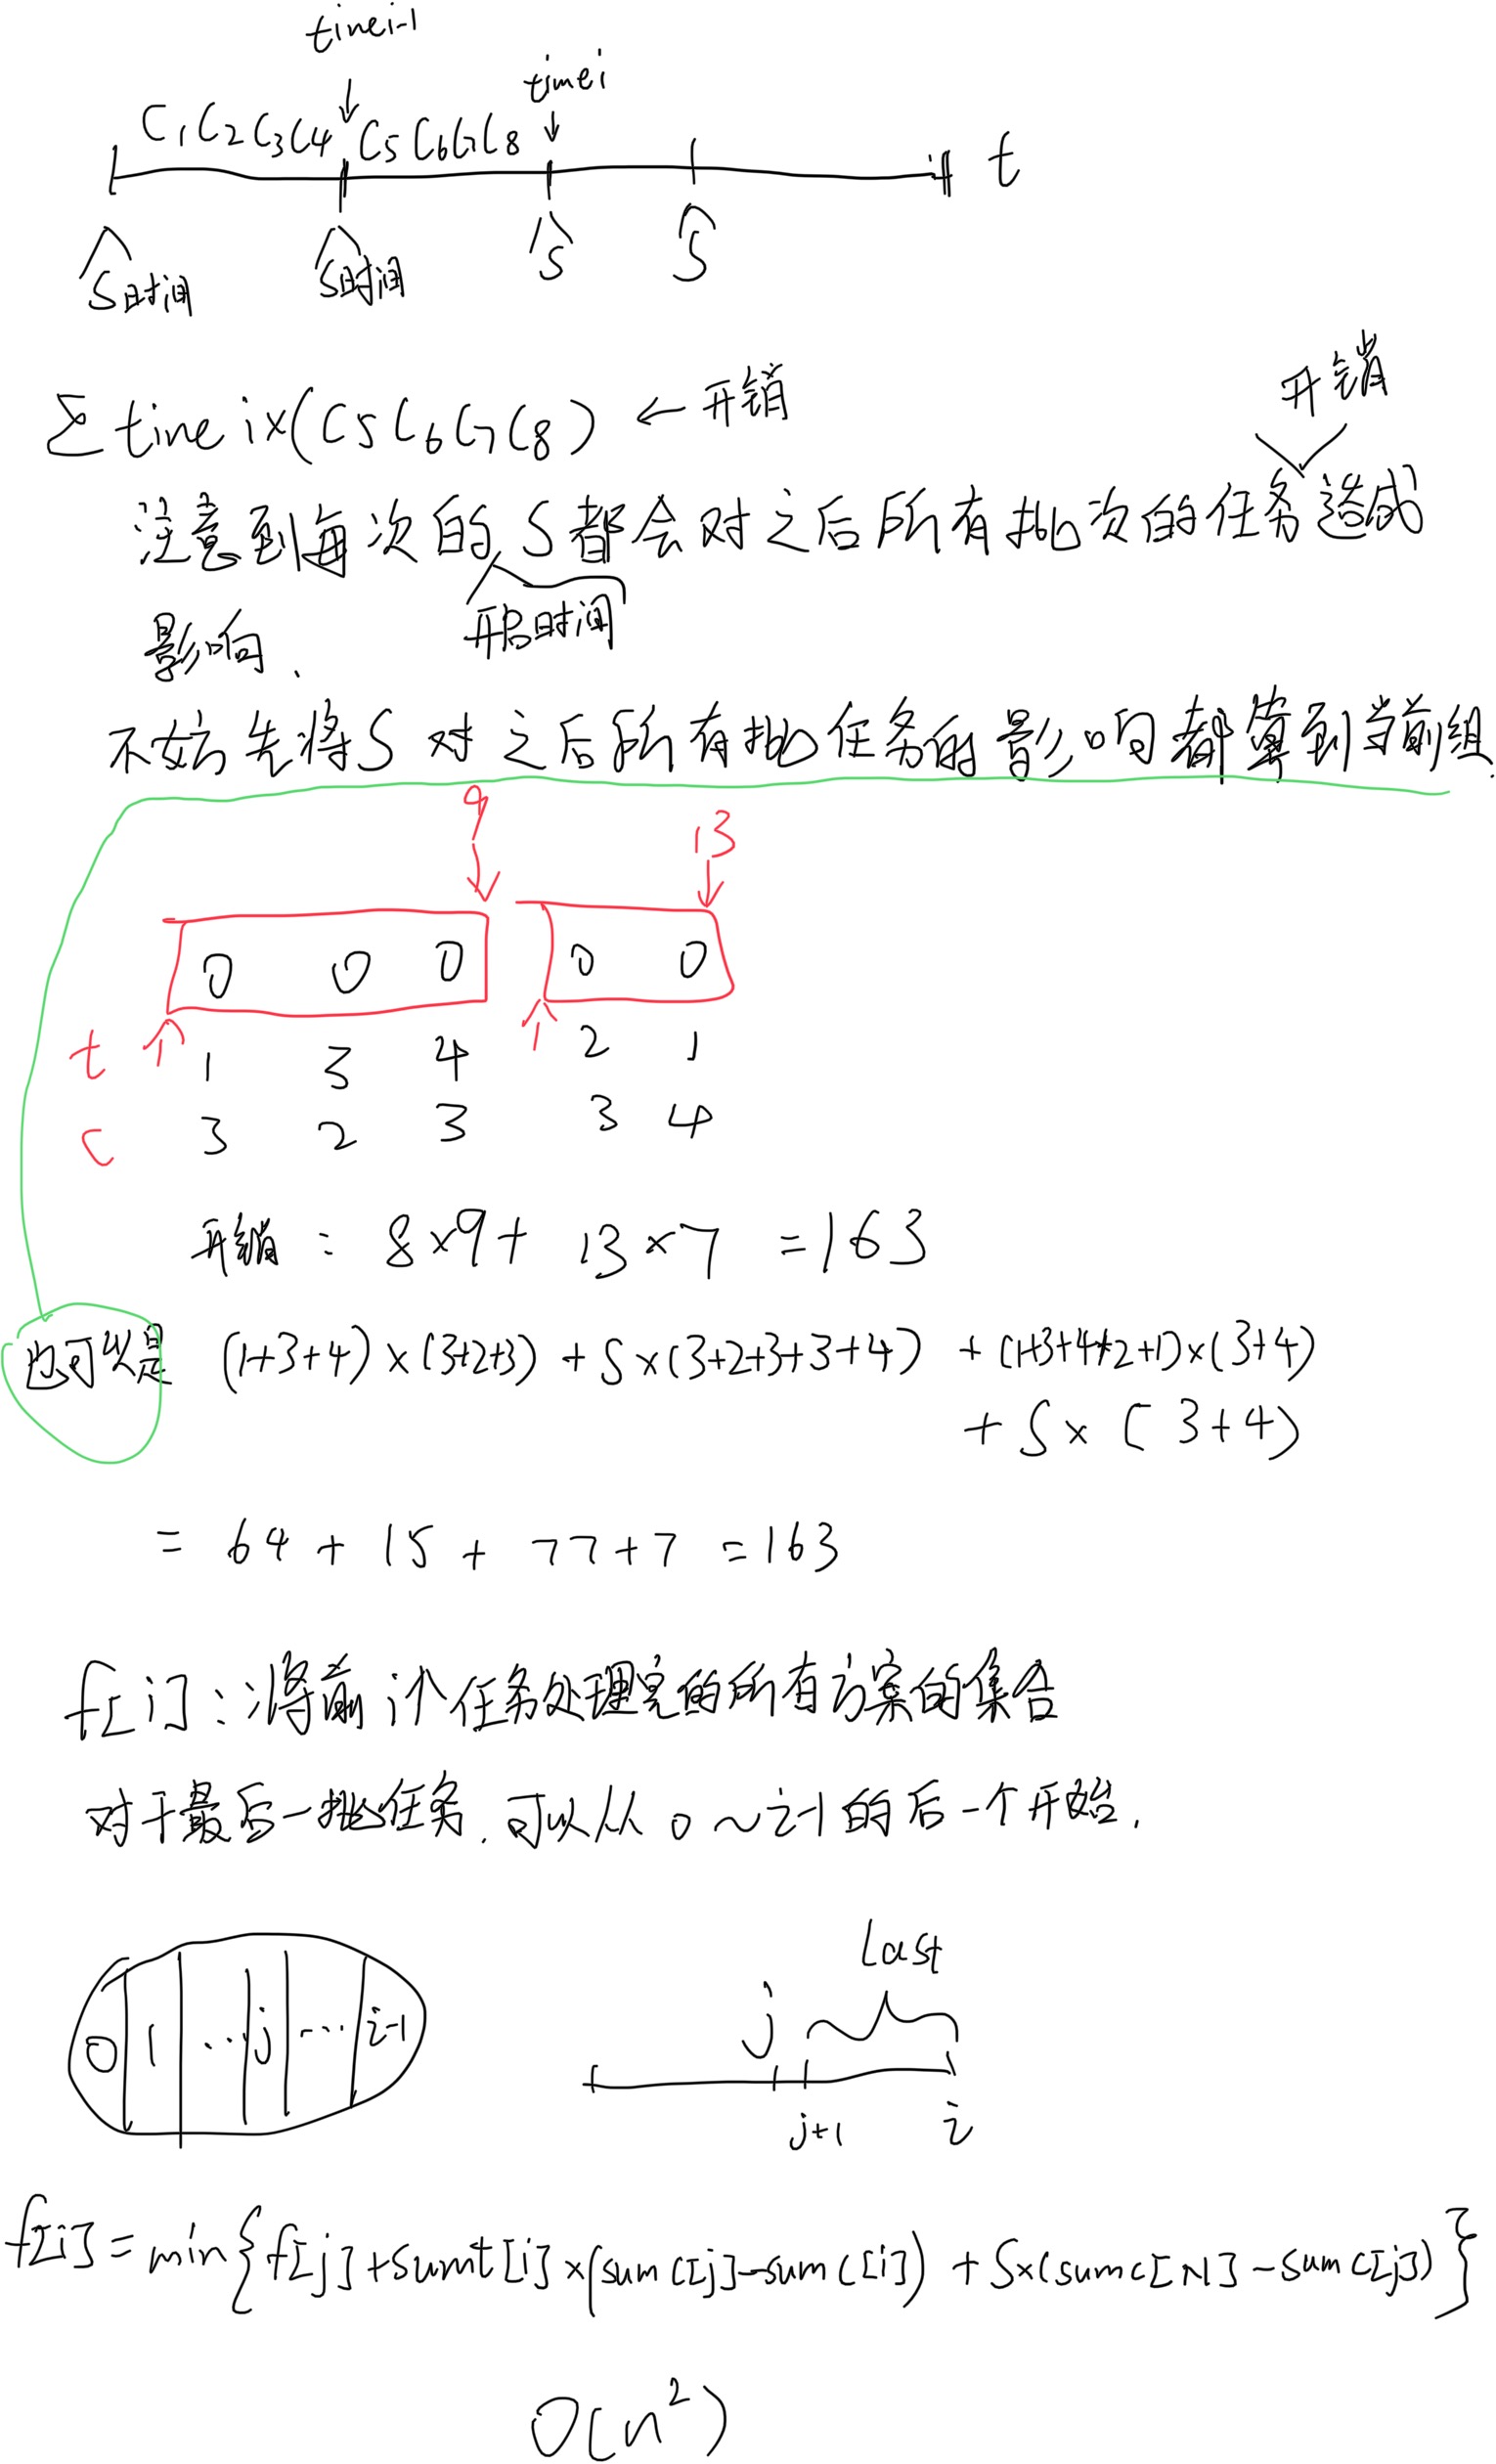 timei-1
timei
C1C2C3C4 C5C6C7C8 t
S时间 S时间 S S
Σtimei×(C5C6C7C8) ←开销
开销
注意到每次的S都会对之后所有批次的任务造成
影响.
开启时间
不妨先将S对之后所有批任务的影响都算到当前组.
9 13
0 0 0 0 0
t 1 3 4 2 1
C 3 2 3 3 4
开销: 8×9+ 13×7 =163
也可以是 (1+3+4)×(3+2+3) + S×(3+2+3+3+4) + (1+3+4+2+1)×(3+4)
+ S×(3+4)
= 64+15+77+7=163
f[i]:将前i个任务处理完的所有方案的集合
对于最后一批任务.可以从0~i-1的后一个开始.
Last
0 1 ... j ... i-1 j
j+1 i
f[i]=min{f[j]+sumt[i]×(sumc[j]-sumc[i])+S×(sumc[N]-sumc[j])}
O(n²)